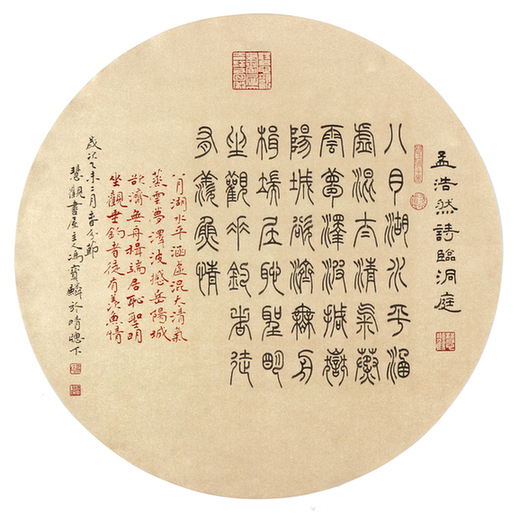 孟浩然詩臨洞庭
八月湖水平涵
虛混太清氣蒸
雲夢澤波撼嶽
陽城欲濟無舟
楫端居恥聖明
坐觀垂釣者徒
有羨魚情
八月湖水平涵虛混太清氣
蒸雲夢澤波撼岳陽城
欲濟無舟楫端居恥聖明
坐觀垂釣者徒有羨魚情
歲次乙未二月春分節
慧觀書屋主馮寶麟於晴牕下